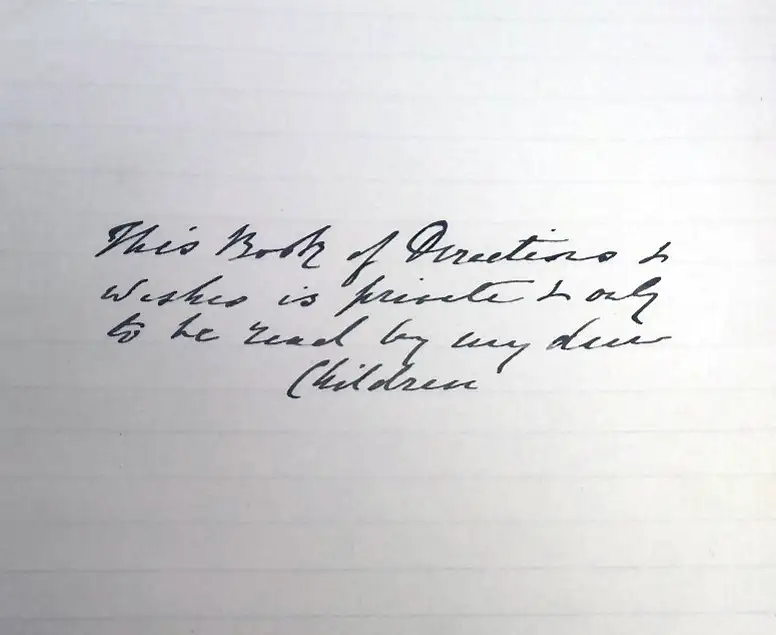 This Book of Directions &
wishes is private & only
to be read by my dear
Children